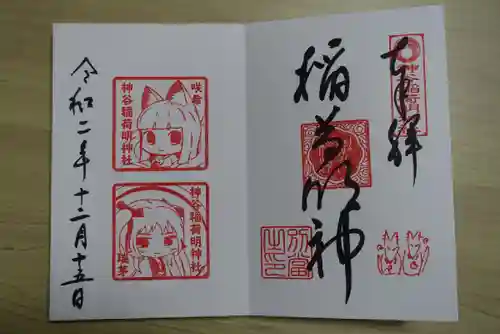 奉拝
稲荷明神
令和二年十二月十五日
神谷稲荷明神社
咲希
神谷稲荷明神社